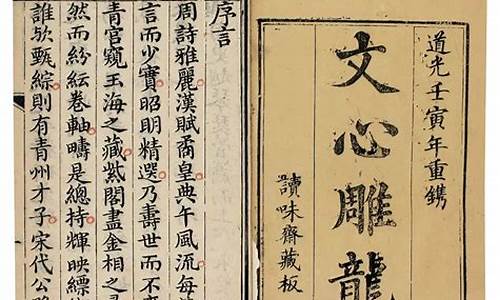 道光壬寅年重鐫
文心雕龍
讀味齋藏板
序言
周詩雅麗漢賦裔皇典午風流每
言而少實昭明精選乃壽世而不
青宮窺玉海之藏紫閣盡金相之
然而紛紜卷軸疇是總持輝映縹
誰欤甄綜則有青州才子宋代公